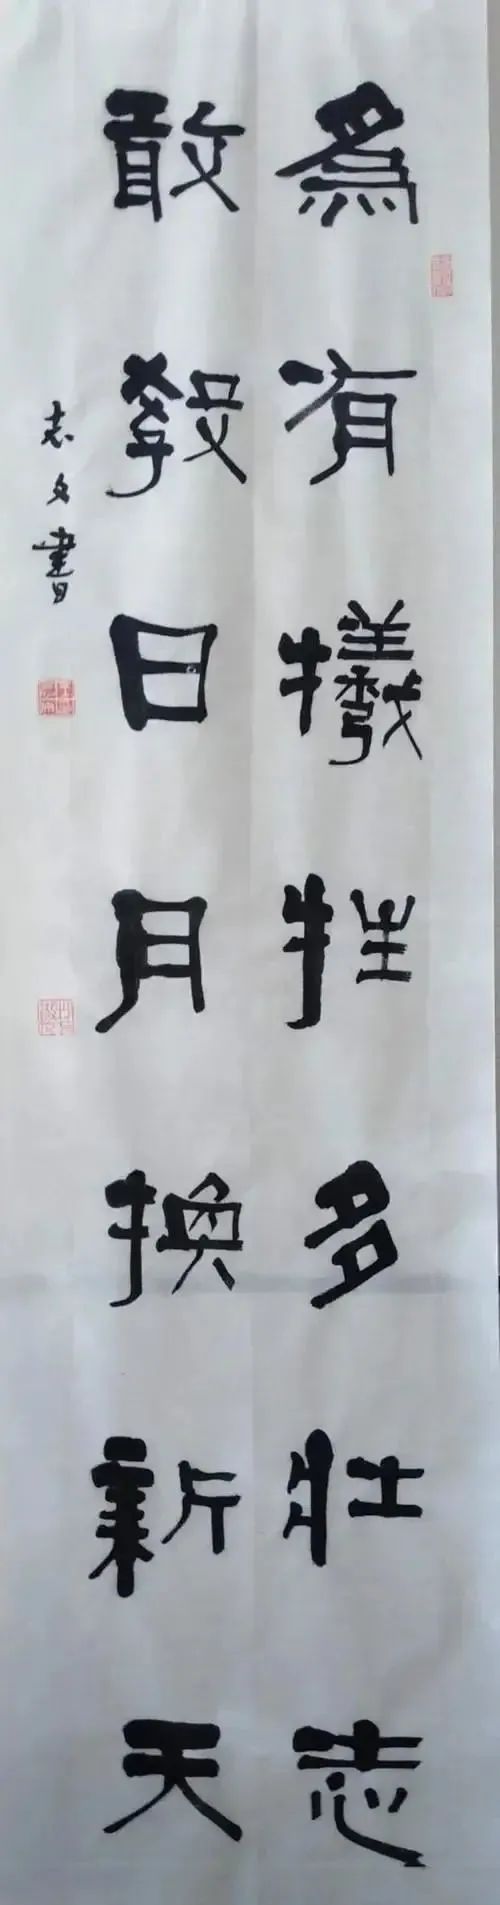 為有犧牲多壯志
敢教日月換新天
志文書